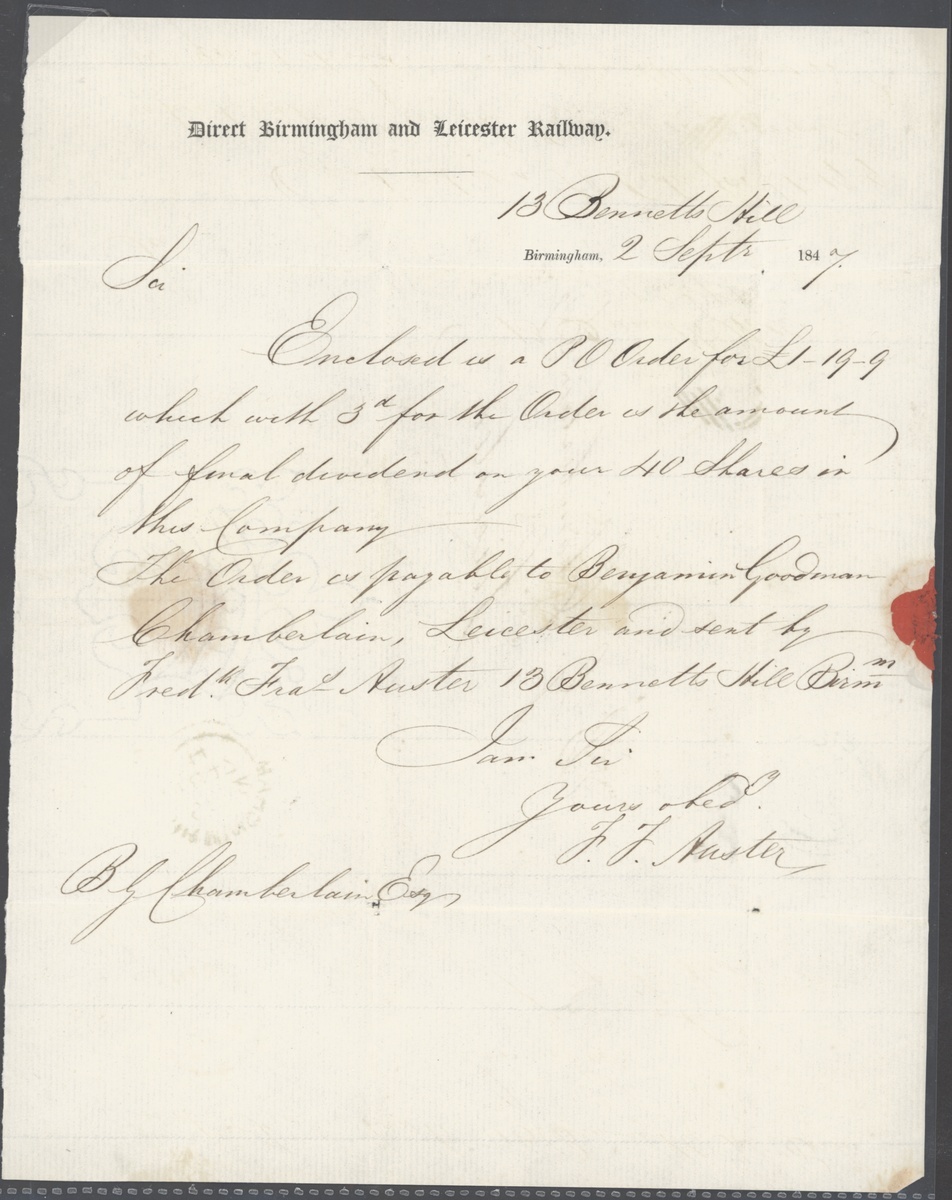 Direct Birmingham and Leicester Railway.
13 Bennetts Hill
Birmingham, 2 Septr. 1847.
Sir
Enclosed is a PO Order for £1-19-9
which with 3d for the Order is the amount
of final dividend on your 40 Shares in
this Company
The Order is payable to Benjamin Goodman
Chamberlain, Leicester and sent by
Fredk. Fras Auster 13 Bennetts Hill Birmm
I am Sir
Yours obedy.
F. F. Auster
B G Chamberlain Esq